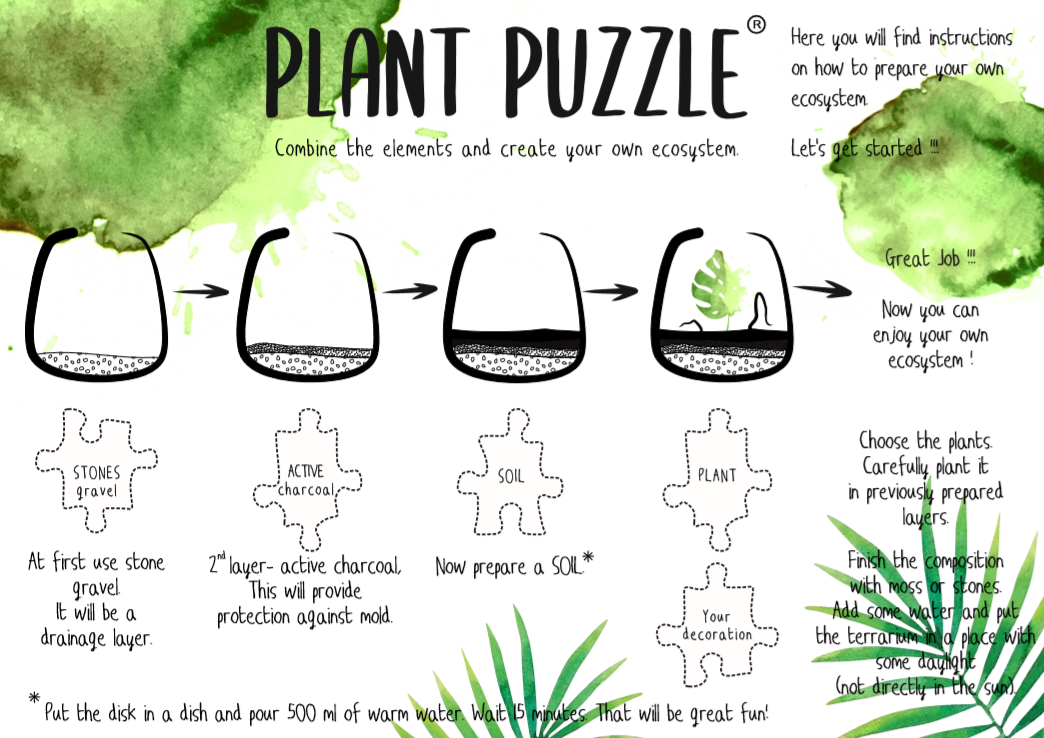 PLANT PUZZLE®
Combine the elements and create your own ecosystem.
Here you will find instructions
on how to prepare your own
ecosystem.
Let's get started !!!
Great Job !!!
Now you can
enjoy your own
ecosystem !
STONES
gravel
ACTIVE
charcoal
SOIL
PLANT
Your
decoration
At first use stone
gravel.
It will be a
drainage layer.
2nd layer- active charcoal,
This will provide
protection against mold.
Now prepare a SOIL.*
Choose the plants.
Carefully plant it
in previously prepared
layers.
Finish the composition
with moss or stones.
Add some water and put
the terrarium in a place with
some daylight
(not directly in the sun).
* Put the disk in a dish and pour 500 ml of warm water. Wait 15 minutes. That will be great fun!